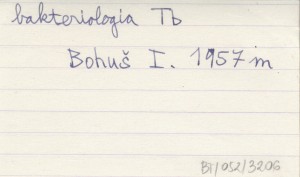 bakteriologia Tb
Bohuš I. 1957 m
BI/052/3206